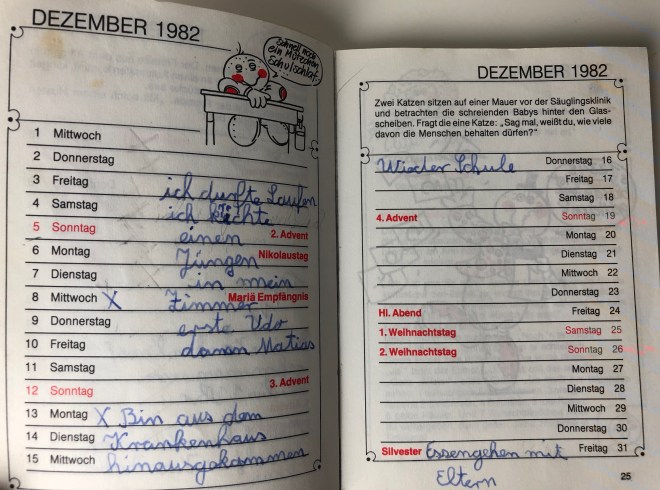 DEZEMBER 1982
Schnell noch
ein Mützchen
Schulschlaf..
1 Mittwoch
2 Donnerstag
3 Freitag ich durfte Laufen
4 Samstag ich
5 Sonntag einen 2. Advent
6 Montag Jungen Nikolaustag
7 Dienstag in mein
8 Mittwoch X Zimmer Mariä Empfängnis
9 Donnerstag erste Udo
10 Freitag dann Matias
11 Samstag
12 Sonntag 3. Advent
13 Montag X Bin aus dem
14 Dienstag Krankenhaus
15 Mittwoch hinausgekommen
DEZEMBER 1982
Zwei Katzen sitzen auf einer Mauer vor der Säuglingsklinik
und betrachten die schreienden Babys hinter den Glas-
scheiben. Fragt die eine Katze: „Sag mal, weißt du, wie viele
davon die Menschen behalten dürfen?"
Wieder Schule Donnerstag 16
Freitag 17
Samstag 18
4. Advent Sonntag 19
Montag 20
Dienstag 21
Mittwoch 22
Donnerstag 23
Hl. Abend Freitag 24
1. Weihnachtstag Samstag 25
2. Weihnachtstag Sonntag 26
Montag 27
Dienstag 28
Mittwoch 29
Donnerstag 30
Silvester Essengehen mit Freitag 31
Eltern
25